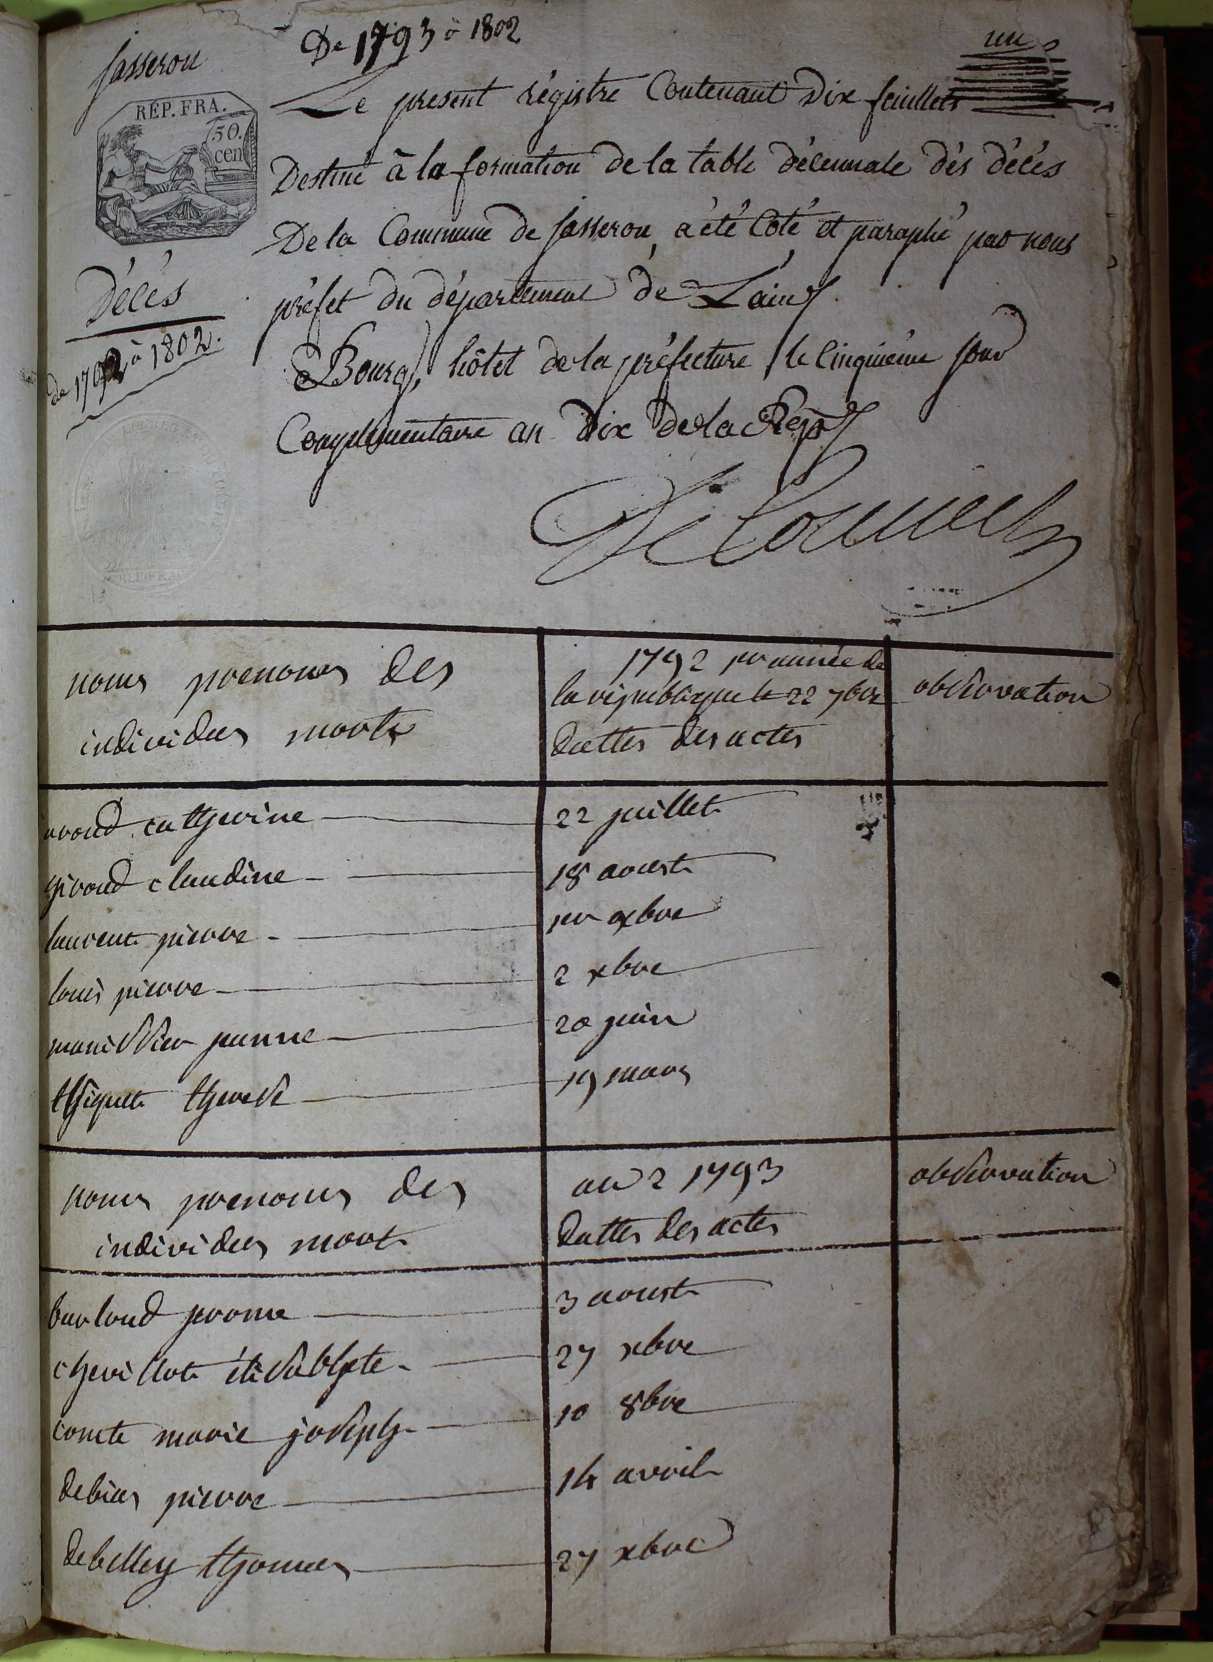 Jasseron
De 1793 à 1802
un
REP. FRA.
50.
cen
Le present régistre Contenant Dix feuillets
Destiné à la formation de la table décennale dés décés
De la Commune de Jasseron, a été Coté et paraphé par nous
préfet du département de L'ain
Décés
de 1792 à 1802.
à Bourg, hôtel de la préfecture, le Cinquième jour
Complémentaire an Dix de la Rep
noms prenoms des
individus morts
1792 1er année de
la république le 22 7bre
dattes des actes
observation
avoud catherine
22 juillet
givoud claudine
18 aoust
laurent pierre
1er xbre
louis pierre
2 xbre
jeanne
20 juin
therese
19 mars
noms prenoms des
individus mort
an 2 1793
dattes des actes
observation
jerome
3 aoust
chevillot élisabhete
27 xbre
comte marie joseph
10 8bre
debias pierre
14 avril
debelley thomas
27 xbre